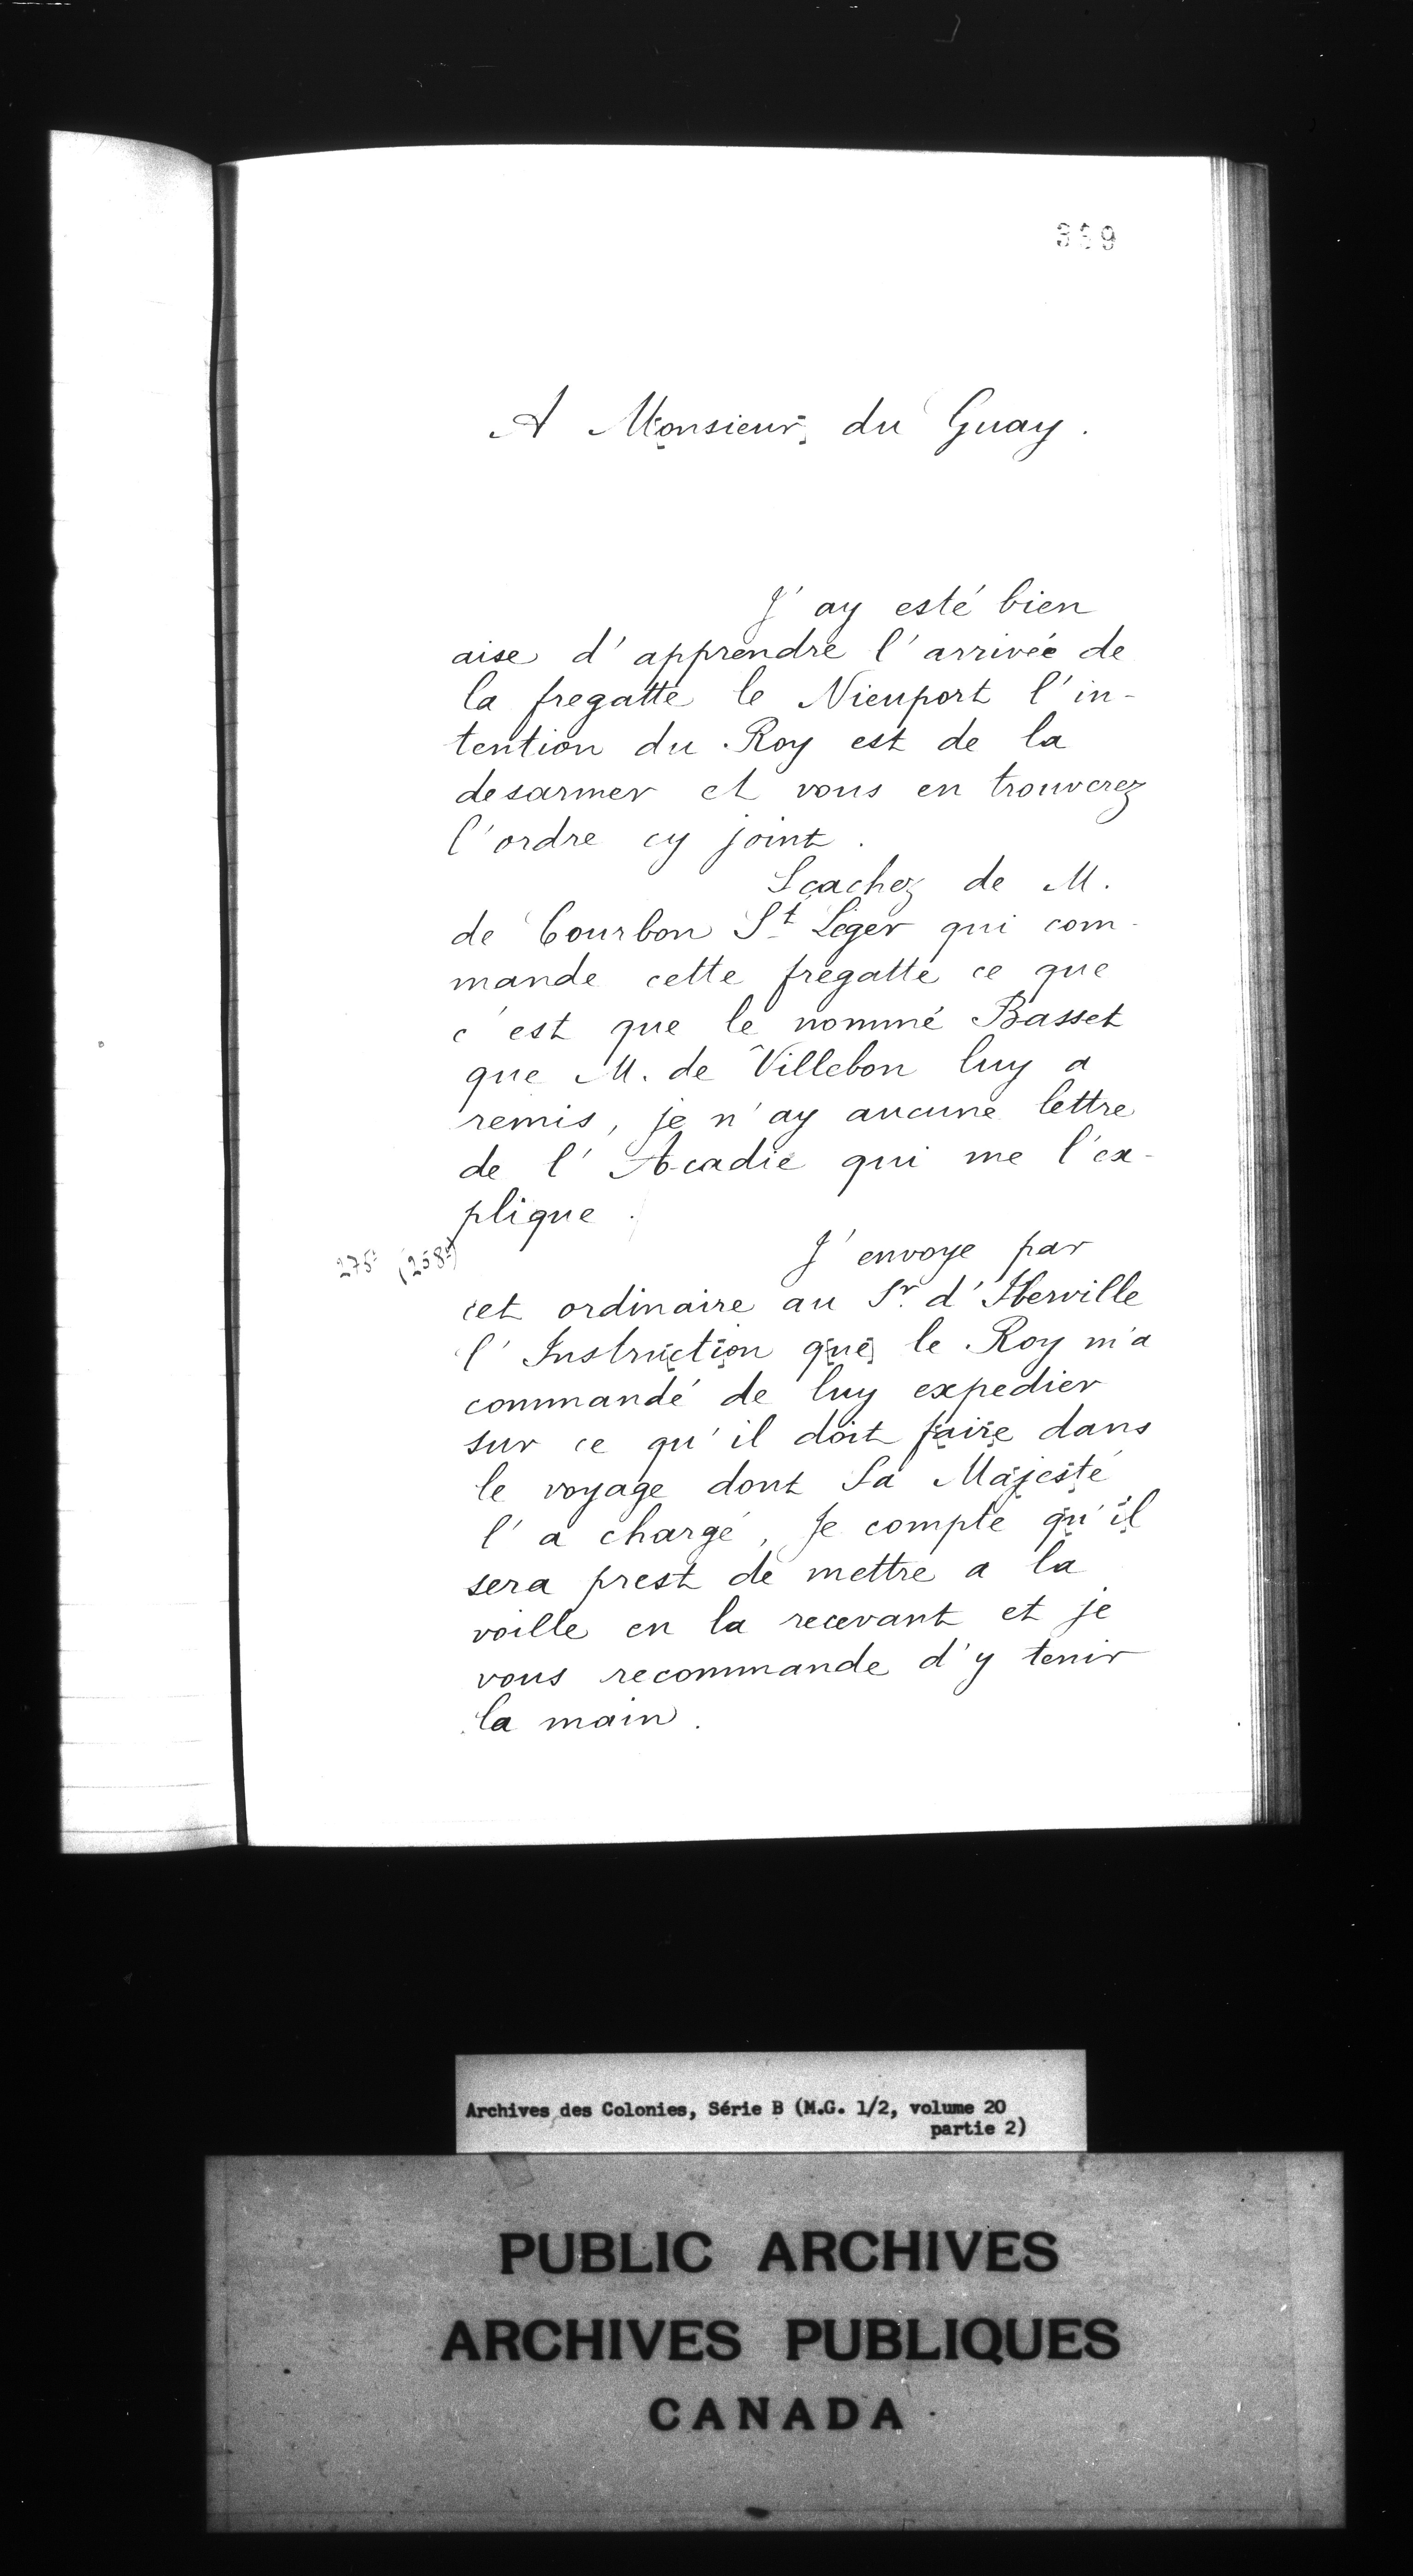 359
A M[onsieur] du Guay.
J'ay esté bien
aise d'apprendre l'arrivée de
la fregatte le Nieuport l'in-
tention du Roy est de la
desarmer et vous en trouverez
l'ordre cy joint.
Sçachez de M.
de Courbon St Leger qui com-
mande cette fregatte ce que
c'est que le nommé Basset
que M. de Villebon luy a
remis, je n'ay aucune lettre
de l'Acadie qui me l'ex-
plique.
275 (258)
J'envoye par
cet ordinaire au Sr. d'Iberville
l'Instru[ct]ion q[ue] le Roy m'a
commandé de luy expedier
sur ce qu'il doit f[air]e dans
le voyage dont Sa Maj[es]té
l'a chargé, Je compte q[u']il
sera prest de mettre a la
voille en la recevant et je
vous recommande d'y tenir
la main.
Archives des Colonies, Série B (M.G. 1/2, volume 20
partie 2)
PUBLIC ARCHIVES
ARCHIVES PUBLIQUES
CANADA